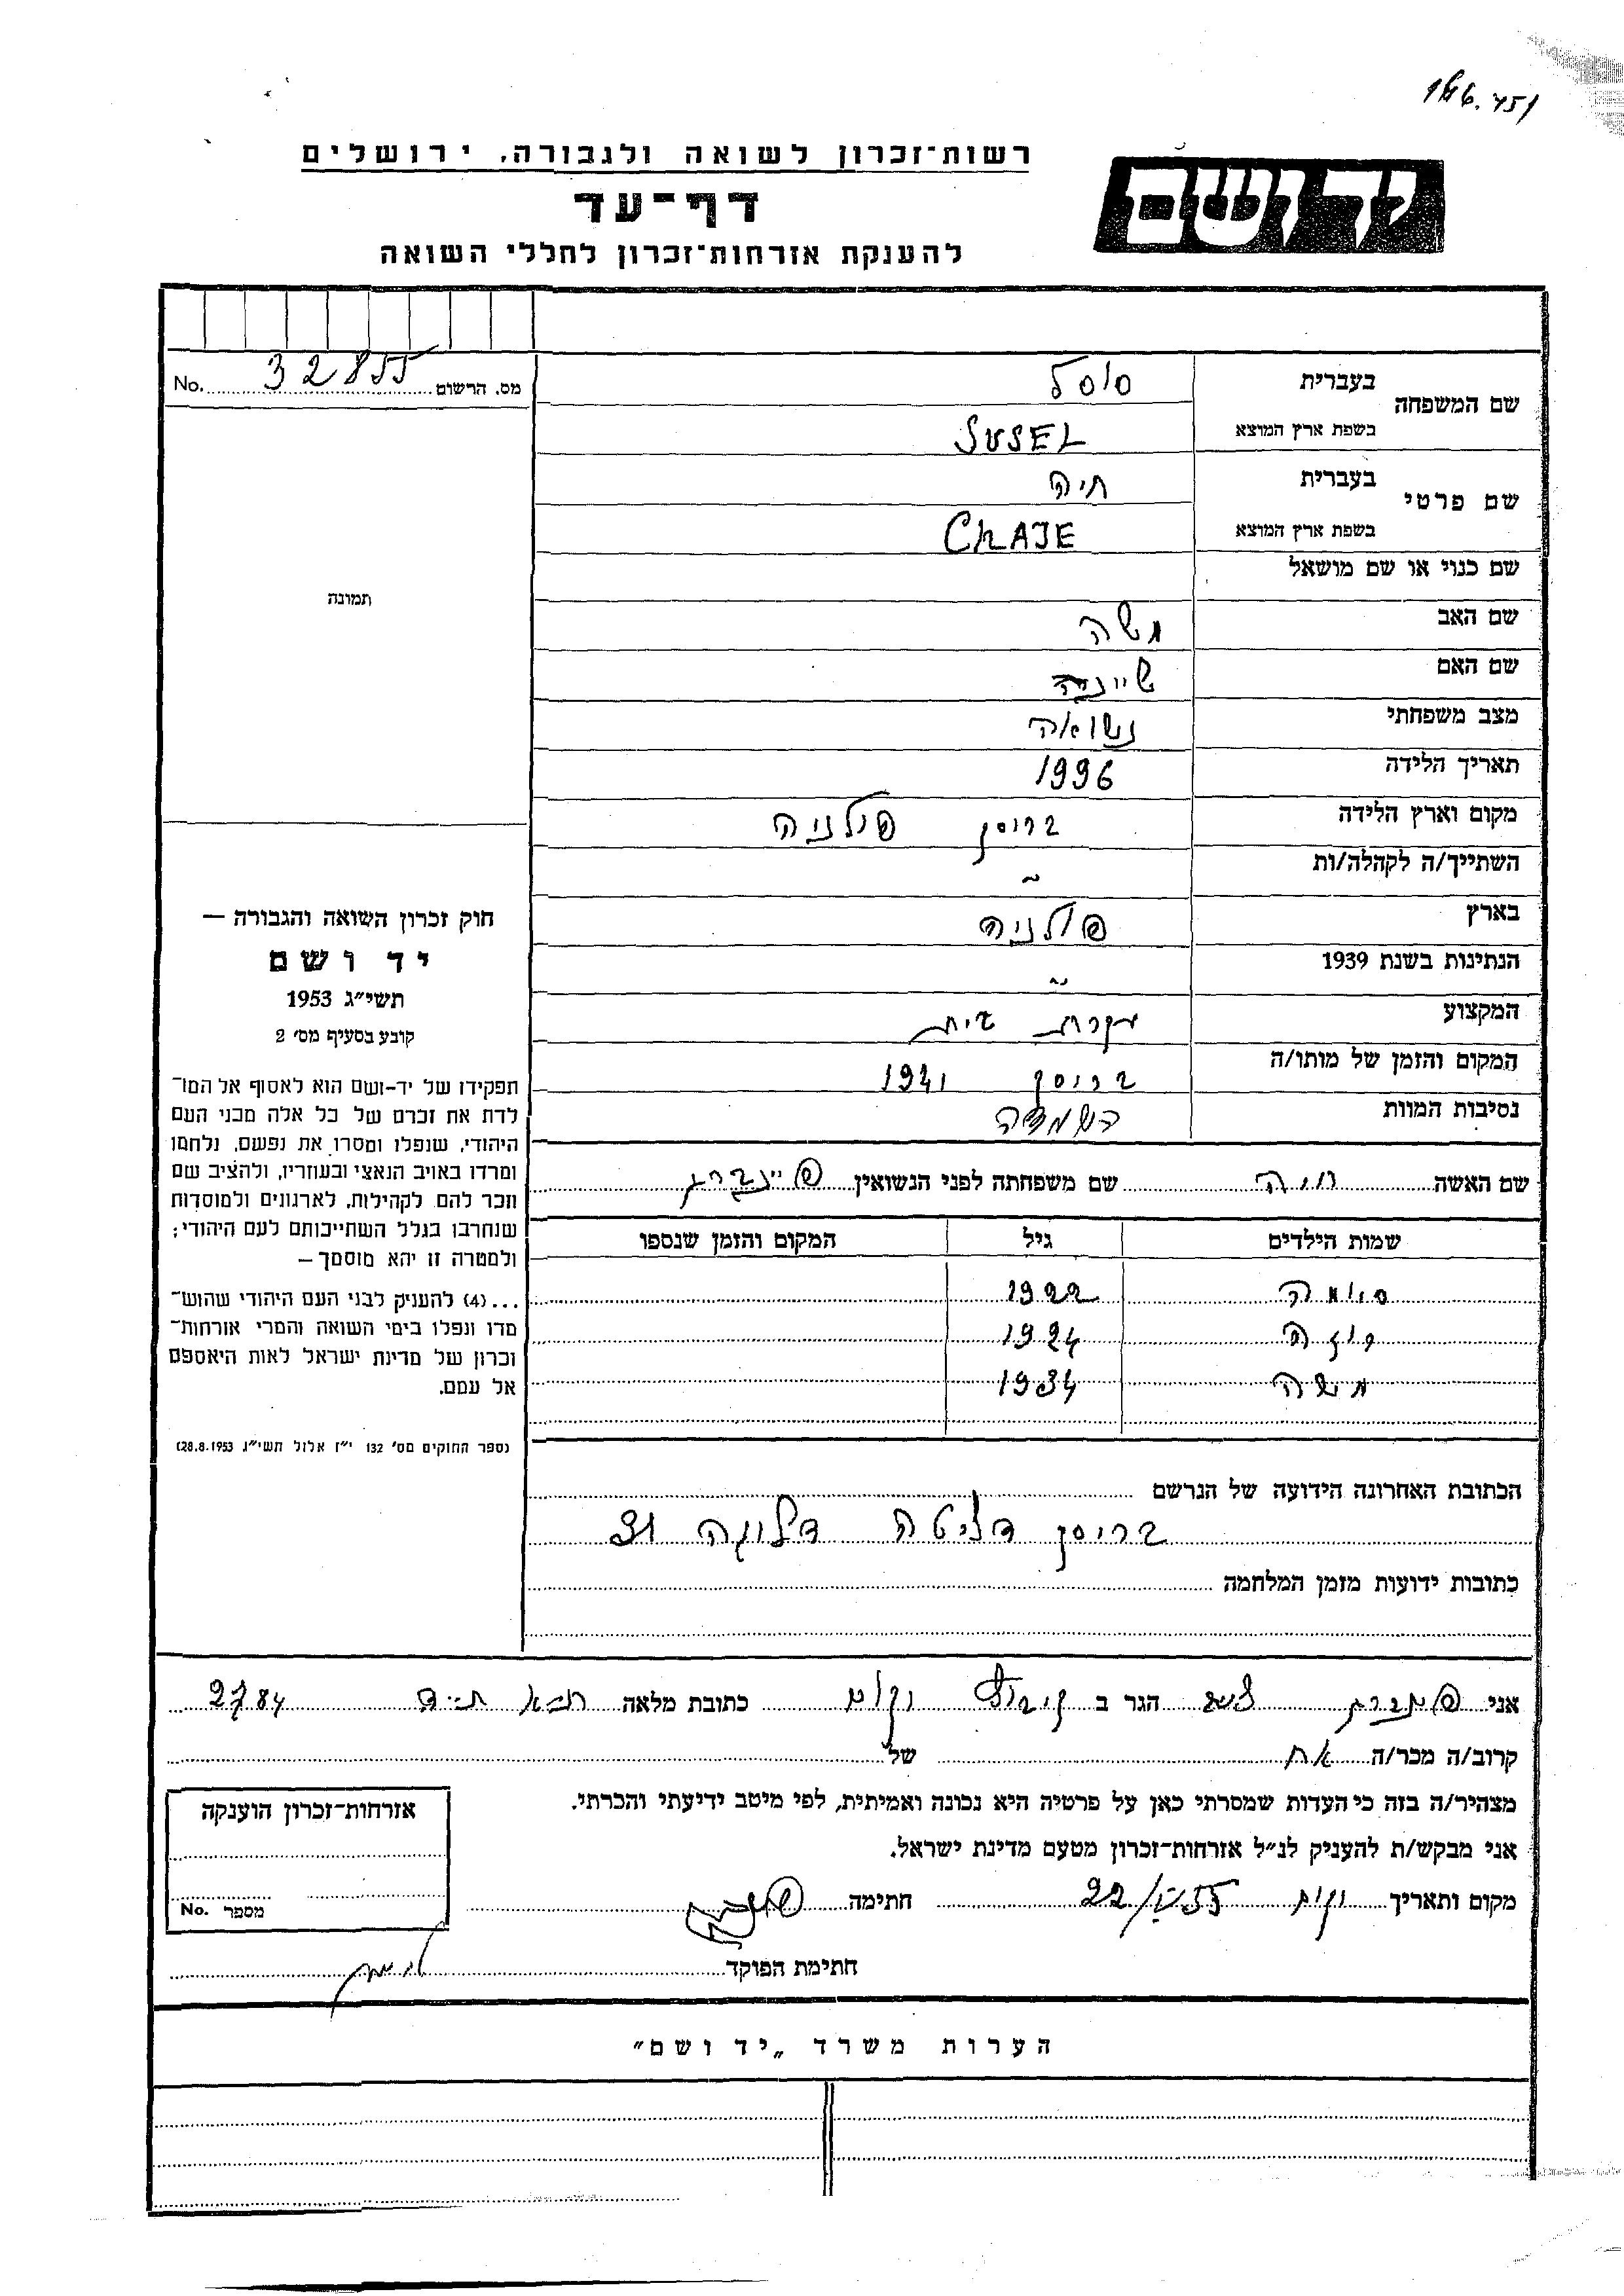 רשות־זכרון לשואה ולגבורה, ירושלים
ידושם
דף־עד
להענקת אזרחות־זכרון לחללי השואה
No. 32855 מס. הרשום
שם המשפחה בעברית סוסל
בשפת ארץ המוצא SUSEL
שם פרטי בעברית חיה
בשפת ארץ המוצא CHAJE
שם כנוי או שם מושאל
שם האב משה
שם האם
מצב משפחתי נשואה
תאריך הלידה 1996
מקום וארץ הלידה פולניה
השתייך/ה לקהלה/ות ~
בארץ פולניה
הנתינות בשנת 1939 ~
המקצוע עקרת בית
המקום והזמן של מותו/ה 1941
נסיבות המוות השמדה
תמונה
חוק זכרון השואה והגבורה —
יד ושם
תשי״ג 1953
קובע בסעיף מס׳ 2
תפקידו של יד-ושם הוא לאסוף אל המו־
לדת את זכרם של כל אלה מבני העם
היהודי, שנפלו ומסרו את נפשם, נלחמו
ומרדו באויב הנאצי ובעוזריו, ולהציב שם
וזכר להם לקהילות, לארגונים ולמוסדות
שנחרבו בגלל השתייכותם לעם היהודי;
ולמטרה זו יהא מוסמך —
...(4) להעניק לבני העם היהודי שהוש־
מדו ונפלו בימי השואה והמרי אזרחות־
זכרון של מדינת ישראל לאות היאספם
אל עמם.
(ספר החוקים מס׳ 132 י״ז אלול תשי״ג 28.8.1953)
שם האשה חיה שם משפחתה לפני הנשואין פיינברג
שמות הילדים גיל המקום והזמן שנספו
סימה 1922
רוזה 1924
משה 1934
הכתובת האחרונה הידועה של הנרשם
דלוגה 31
כתובות ידועות מזמן המלחמה
אני הגר ב כתובת מלאה 2784
קרוב/ה מכר/ה אח של
מצהיר/ה בזה כי העדות שמסרתי כאן על פרטיה היא נכונה ואמיתית, לפי מיטב ידיעתי והכרתי.
אני מבקש/ת להעניק לנ״ל אזרחות־זכרון מטעם מדינת ישראל.
מקום ותאריך חתימה
חתימת הפוקד
אזרחות־זכרון הוענקה
No. מספר
הערות משרד „יד ושם”